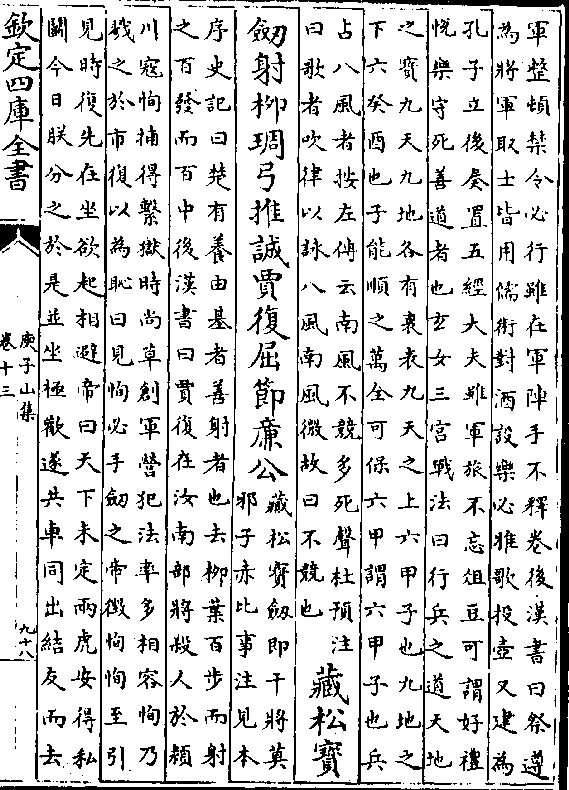 軍整頓禁令必行雖在軍陣手不釋卷後漢書曰祭遵
為將軍取士皆用儒術對酒設樂必雅歌投壺又建為
孔子立後奏置五經大夫雖軍旅不忘俎豆可謂好禮
悅樂守死善道者也玄女三宮戰法曰行兵之道天地
之寶九天九地各有裏表九天之上六甲子也九地之
下六癸酉也子能順之萬全可保六甲謂六甲子也兵
占八風者按左傳云南風不競多死聲杜預注
曰歌者吹律以詠八風南風微故曰不競也
藏松寶
劒射柳琱弓推誠賈復屈節廉公
藏松寶劒即干將莫
邪子赤比事注見本
序史記曰楚有養由基者善射者也去柳葉百步而射
之百發而百中後漢書曰賈復在汝南部將殺人於潁
川寇恂捕得繫獄時尚草創軍營犯法率多相容恂乃
戮之於市復以為恥曰見恂必手劒之帝徵恂恂至引
見時復先在坐欲起相避帝曰天下未定兩虎安得私
鬭今日朕分之於是並坐極歡遂共車同出結友而去
欽定四庫全書
庾子山集
卷十三
九十八